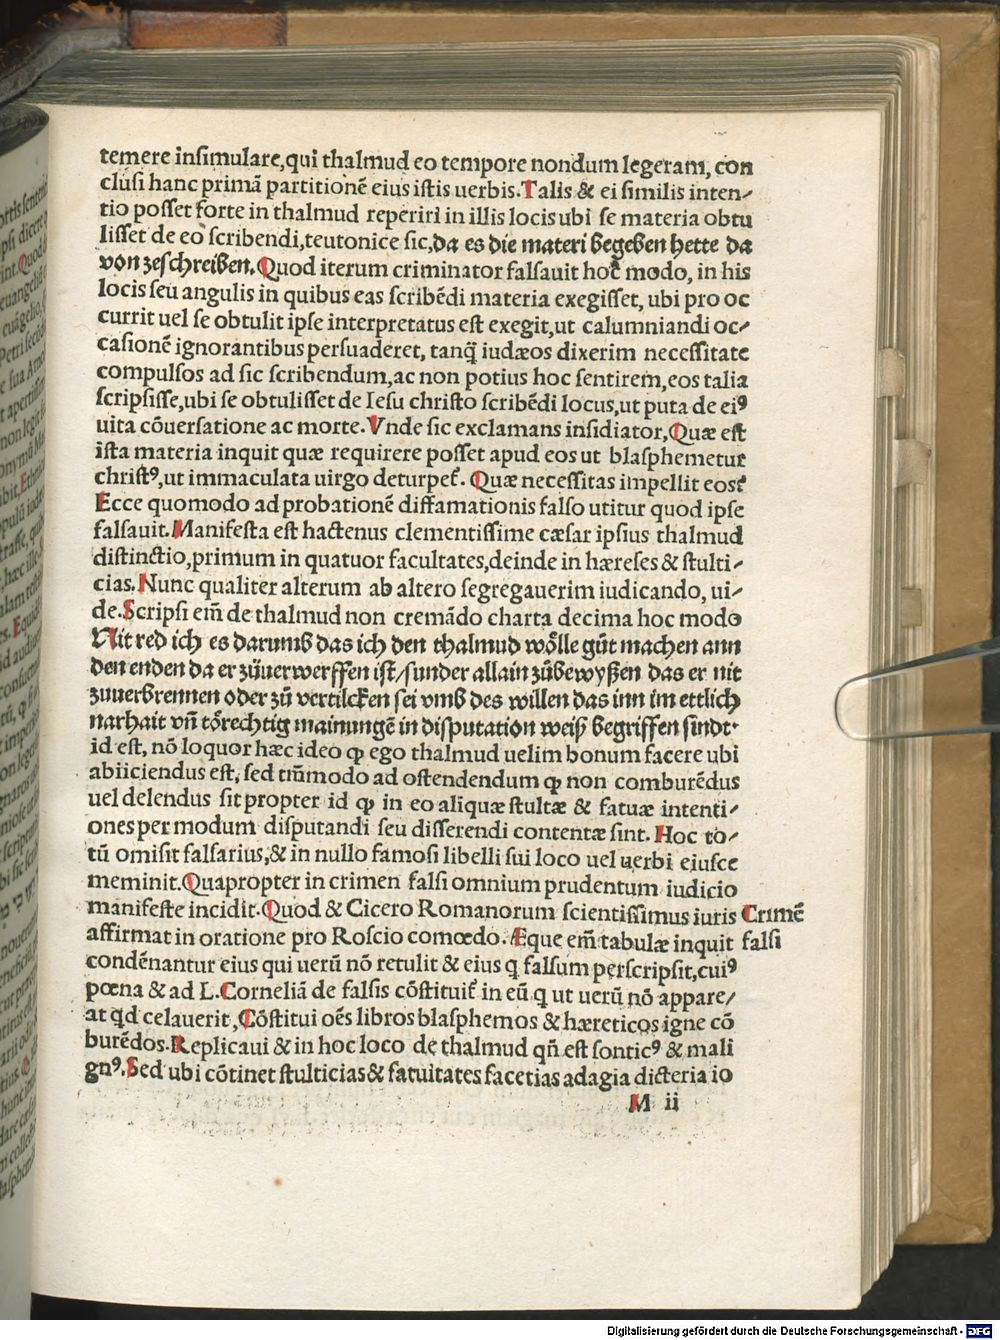 temere insimulare,qui thalmud eo tempore nondum legeram, con
clusi hanc primã partitionẽ eius istis uerbis.Talis & ei similis inten/
tio posset forte in thalmud reperiri in illis locis ubi se materia obtu
lisset de eo scribendi,teutonice sic,da es die materi begeben hette da
von zeschreiben.Quod iterum criminator falsauit hoc modo, in his
locis seu angulis in quibus eas scribẽdi materia exegisset, ubi pro oc
currit uel se obtulit ipse interpretatus est exegit,ut calumniandi oc/
casionẽ ignorantibus persuaderet, tanq̃ iudæos dixerim necessitate
compulsos ad sic scribendum,ac non potius hoc sentirem,eos talia
scripsisse,ubi se obtulisset de Iesu christo scribẽdi locus,ut puta de eiꝰ
uita cõuersatione ac morte.Vnde sic exclamans insidiator,Quæ est
ista materia inquit quæ requirere posset apud eos ut blasphemetur
christꝰ,ut immaculata uirgo deturpet᷑. Quæ necessitas impellit eos?
Ecce quomodo ad probationẽ diffamationis falso utitur quod ipse
falsauit.Manifesta est hactenus clementissime cæsar ipsius thalmud
distinctio,primum in quatuor facultates,deinde in hæreses & stulti/
cias.Nunc qualiter alterum ab altero segregauerim iudicando, ui/
de.Scripsi em̃ de thalmud non cremãdo charta decima hoc modo
Nit red ich es darumb das ich den thalmud wo̊lle gůt machen ann
den enden da er zůuerwerffen ist/sunder allain zůbewyßen das er nit
zuuerbrennen oder zů vertilcken sei vmb des willen das inn im ettlich
narhait vñ törechtig mainungẽ in disputation weiß begriffen sindt.
id est, nõ loquor hæc ideo ꝙ ego thalmud uelim bonum facere ubi
abiiciendus est, sed tm̃modo ad ostendendum ꝙ non comburẽdus
uel delendus sit propter id ꝙ in eo aliquæ stultæ & fatuæ intenti/
ones per modum disputandi seu disserendi contentæ sint. Hoc to/
tũ omisit falsarius,& in nullo famosi libelli sui loco uel uerbi eiusce
meminit.Quapropter in crimen falsi omnium prudentum iudicio
manifeste incidit.Quod & Cicero Romanorum scientissimus iuris
Crimẽ
affirmat in oratione pro Roscio comœdo.Æque em̃ tabulæ inquit
falsi
condẽnantur eius qui uerũ nõ retulit & eius q falsum perscripsit,cuiꝰ
pœna & ad L.Corneliã de falsis cõstituit᷑ in eũ q ut uerũ nõ appare/
at qd celauerit,Cõstitui oẽs libros blasphemos & hæreticos igne cõ
burẽdos.Replicaui & in hoc loco de thalmud qñ est sonticꝰ & mali
gnꝰ.Sed ubi cõtinet stulticias & fatuitates facetias adagia dicteria io
M ii
Digitalisierung gefördert durch die Deutsche Forschungsgemeinschaft - DFG